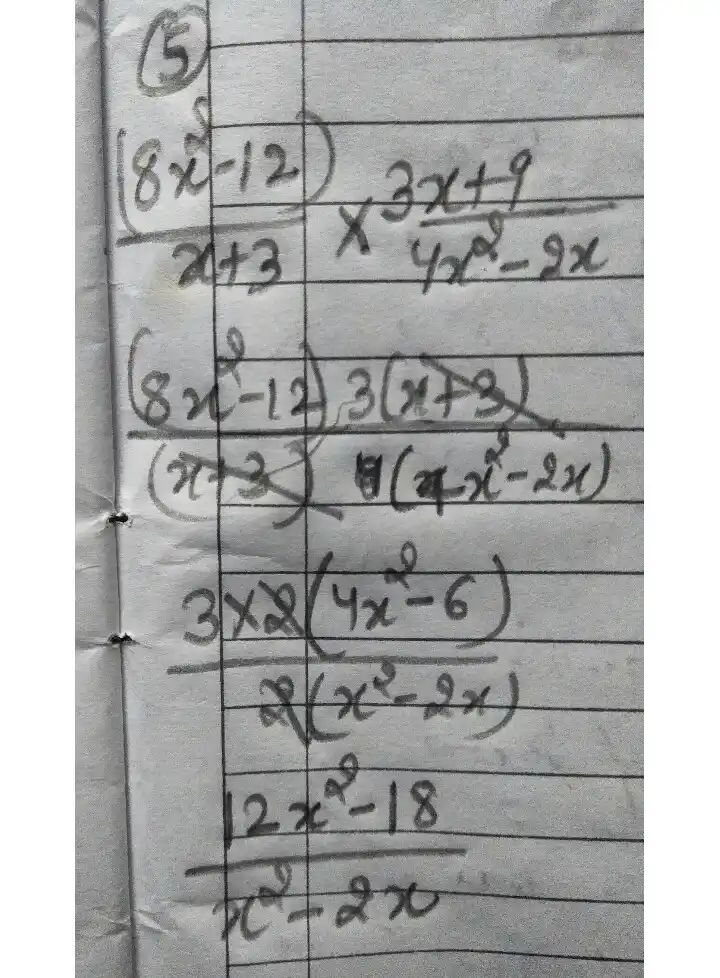 5
(8x²-12)/(x+3) × (3x+9)/(4x²-2x)
(8x²-12) 3(x+3)/(x+3) (4x²-2x)
3×2(4x²-6)/2(x²-2x)
12x²-18/x²-2x